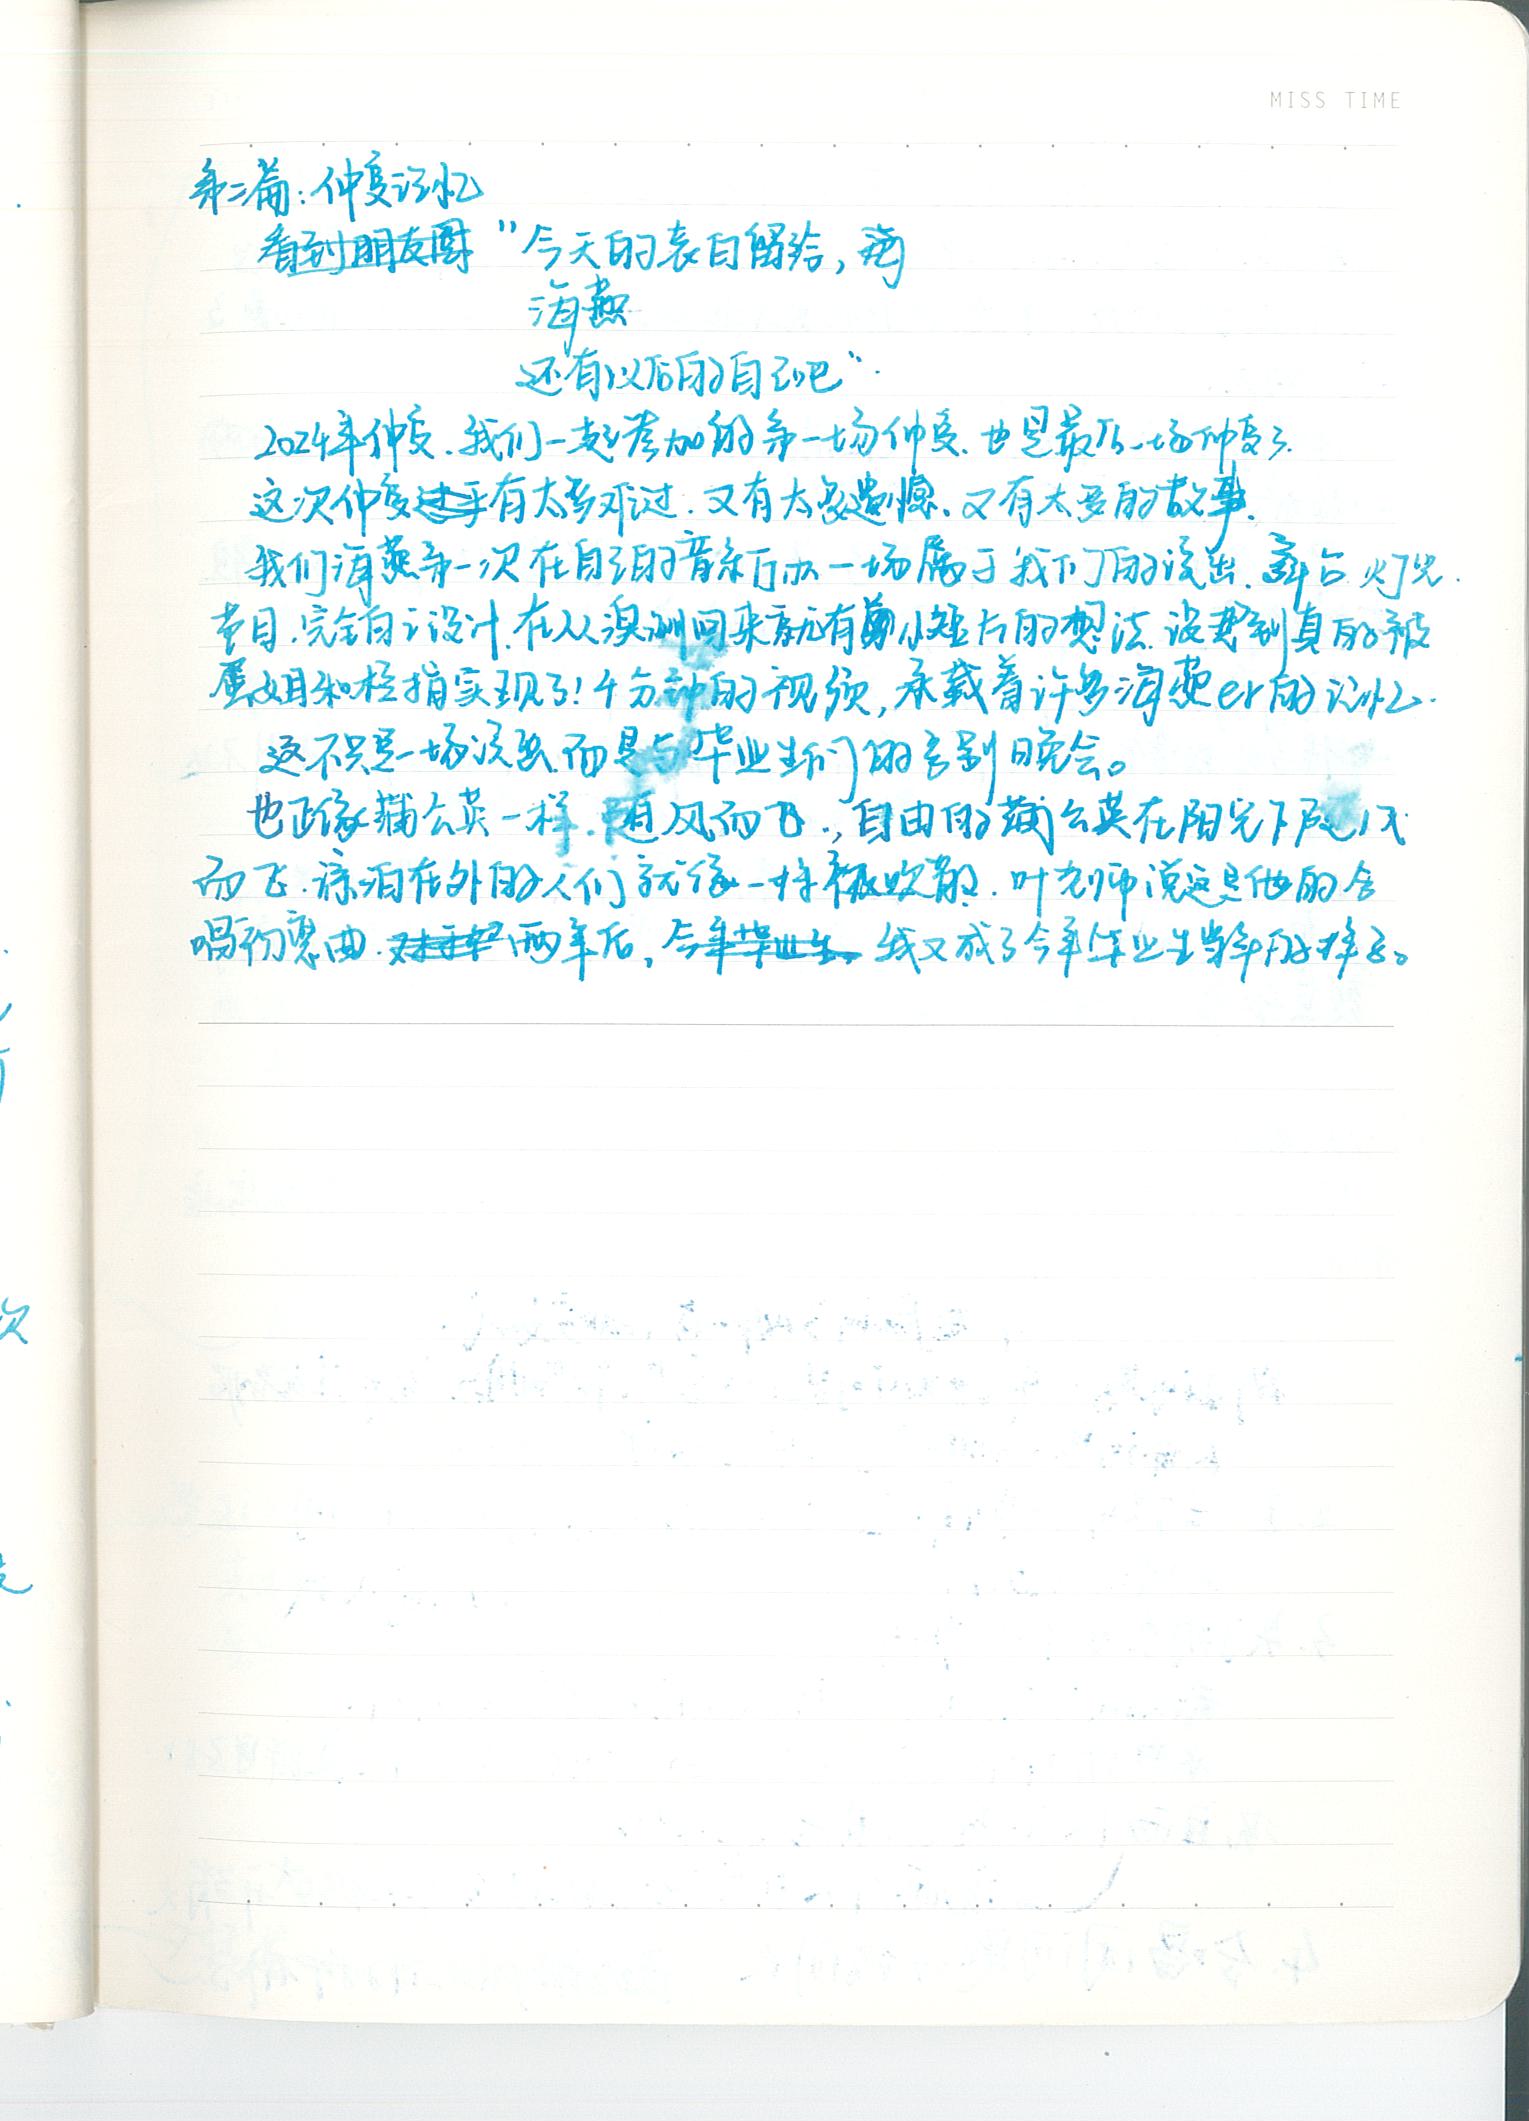 MISS TIME
第二篇：仲夏记忆
看到朋友圈 "今天的表白留给，海
海燕
还有以后的自己吧".
2024年仲夏.我们一起参加的第一场仲夏.也是最后一场仲夏了.
这次仲夏过乎有太多难过.又有太多遗憾、又有太多的故事.
我们海燕第一次在自己的音乐厅办一场属于我们的演出.舞台.灯光.
节目.完全自己设计.在从澳洲回来就有剪小短片的想法.没想到真的被
姐和栓指实现了！十分钟的视频，承载着许多海燕er的记忆.
这不只是一场演出.而是与毕业生们的告别晚会。
也正像蒲公英一样.随风而飞.，自由的蒲公英在阳光下随风
而飞.漂泊在外的人们就像一样被吹散.叶老师说这是他的合
唱初恋曲.两年后，今年毕业生.线又成了今年毕业生当年的样子。